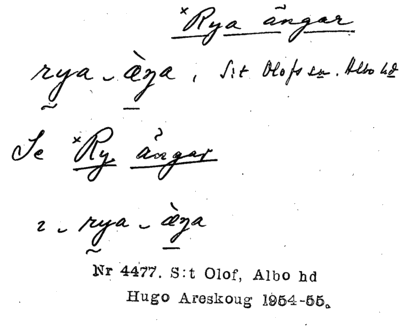 ×Rya ängar
rya - èŋa, S:t Olofs sn. Albo hd
Se ×Ry ängar
2 - rya - èŋa
Nr 4477. S:t Olof, Albo hd
Hugo Areskoug 1954-55.